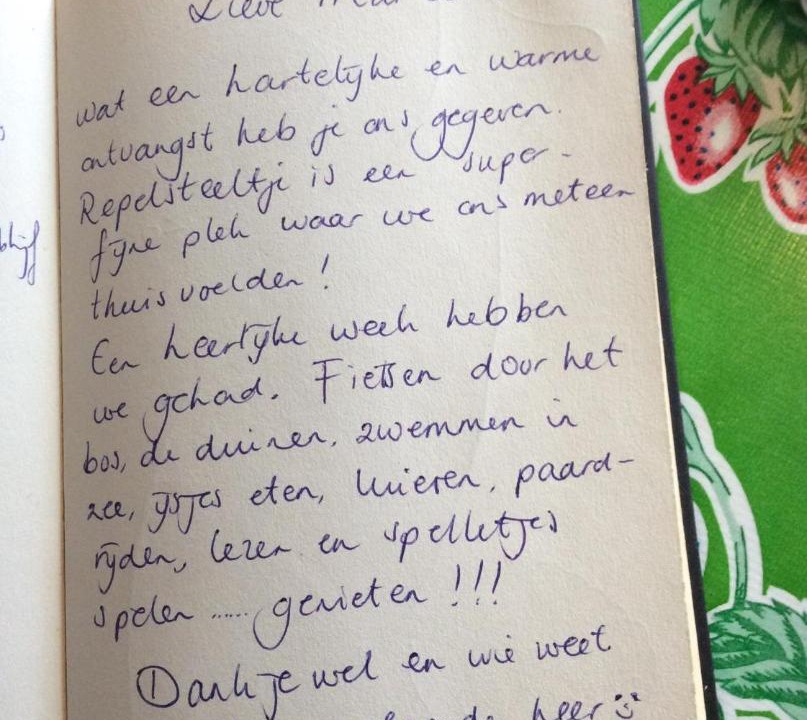 Lieve
wat een hartelijke en warme
ontvangst heb je ons gegeven.
Repelsteeltje is een super-
fijne plek waar we ons meteen
thuis voelden!
Een heerlijke week hebben
we gehad. Fietsen door het
bos, de duinen, zwemmen in
zee, ijsjes eten, luieren, paard-
rijden, lezen en spelletjes
spelen ...... genieten !!!
Dankjewel en wie weet
keer